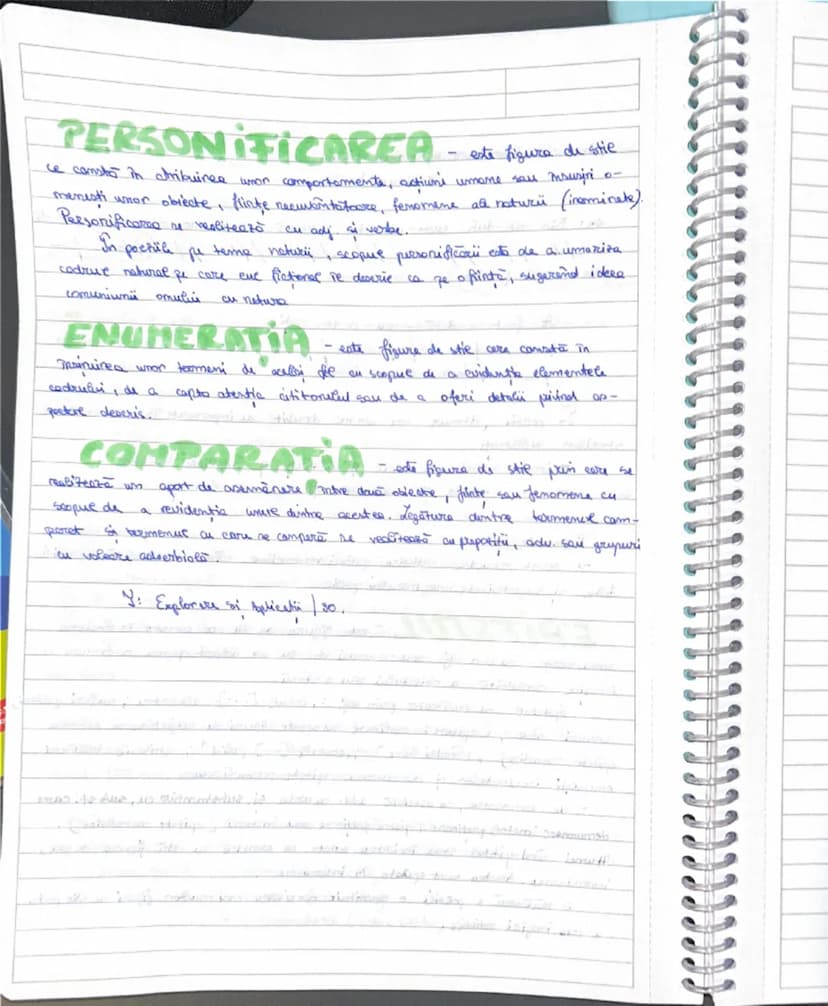 PERSONIFICAREA - este figura de stil
ce constă în atribuirea unor comportamente, acțiuni umane sau însușiri o-
menești unor obiecte, ființe necuvântătoare, fenomene ale naturii (inanimate).
Personificarea se realizează cu adj. și verbe.
În poeziile pe tema naturii, scopul personificării este de a umaniza
cadrul natural pe care eul ficțional îl descrie ca pe o ființă, sugerând ideea
comuniunii omului cu natura
ENUMERAȚIA - este figura de stil care constă în
înșiruirea unor termeni de același fel cu scopul de a evidenția elementele
cadrului, de a capta atenția cititorului sau de a oferi detalii privind as-
pectele descrise.
COMPARAȚIA - este figura de stil prin care se
realizează un aport de asemănare între două obiecte, ființe sau fenomene cu
scopul de a evidenția unele dintre acestea. Legătura dintre termenul com-
parat și termenul cu care se compară se realizează cu prepoziții, adv. sau grupuri
cu valoare adverbială.
T: Explorare și Aplicații / 30.